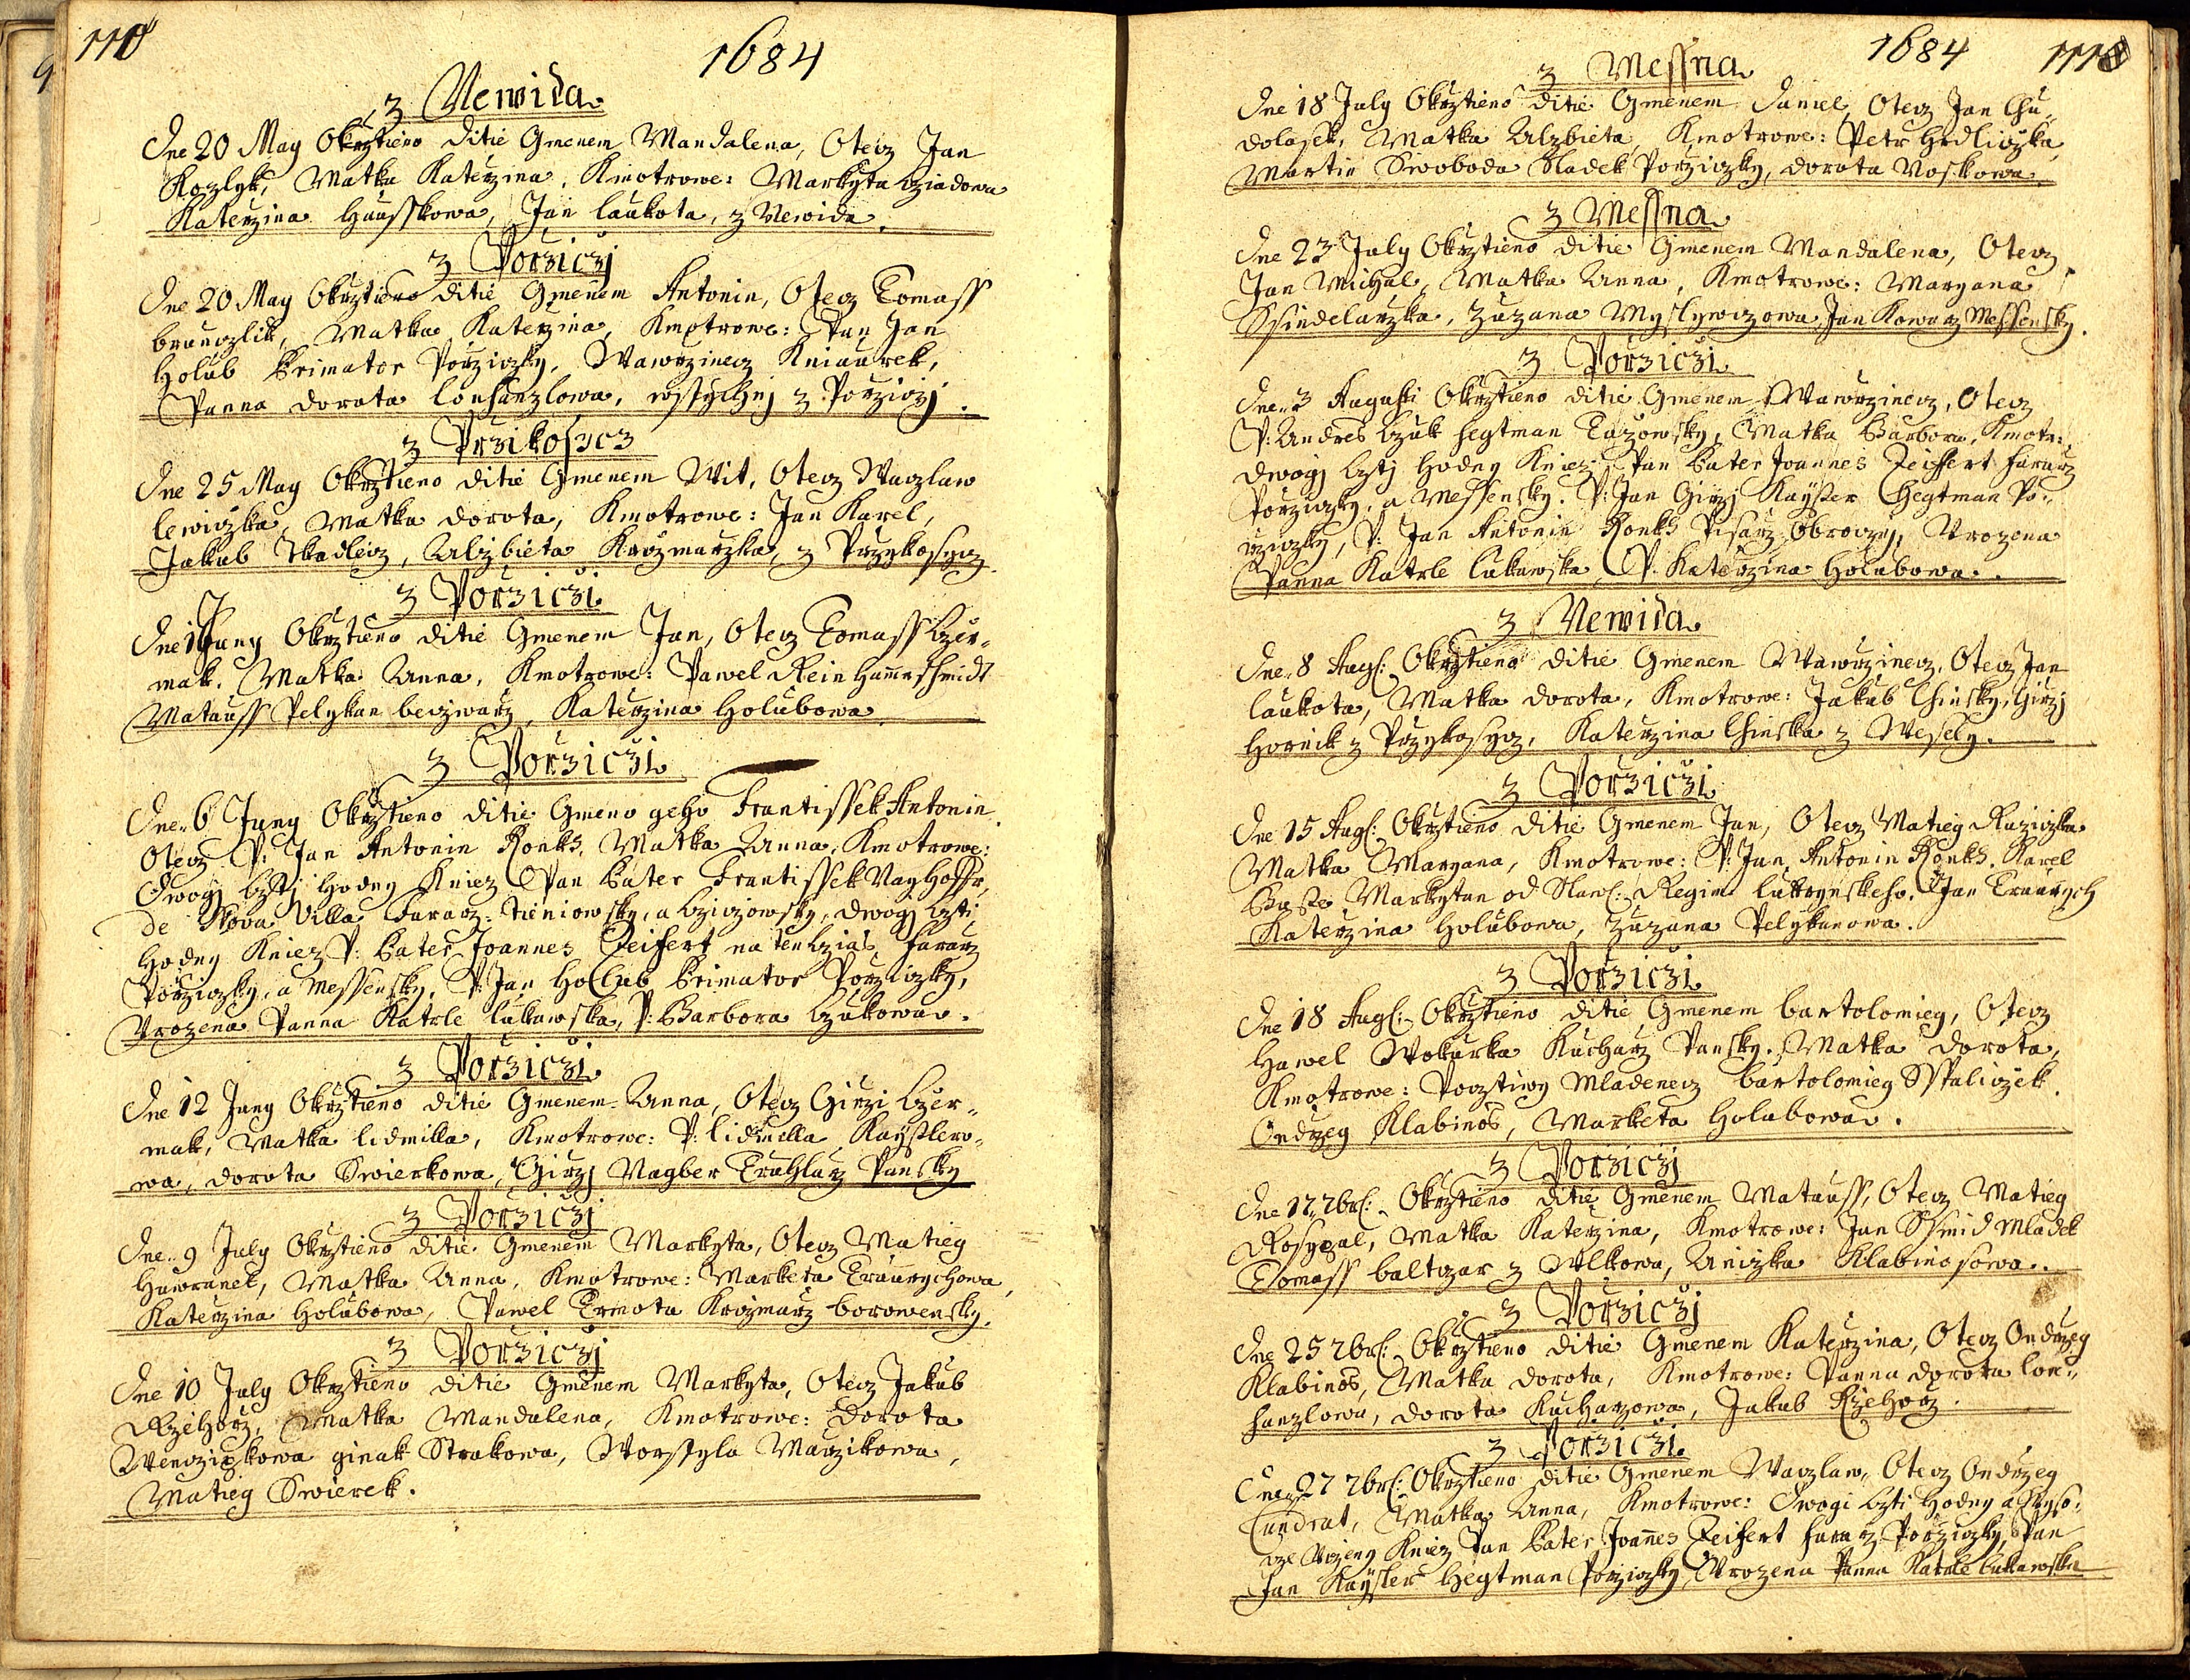 110
1684
z Newida
Dne 20 May Okrztieno ditie Gmenem Mandalena, Otecz Jan
Kozlyk, Matka Katerzina, Kmotrowe: Markyta
Katerzina Hansskowa, Jan Laukota, z Newida.
z Porziczj
Dne 20 May Okrztieno ditie Gmenem Antonin, Otecz Tomass
Matka Katerzina, Kmotrowe: Pan Jan
Holub Primator Porziczky, Wawrzinecz Kniaurek,
Panna Dorota Lonhanzlowa, wssychnj z Porziczj.
z Przikosycz
Dne 25 May Okrztieno ditie Gmenem Wit, Otecz Waczlaw
Lewiczka, Matka Dorota, Kmotrowe: Jan Karel,
Jakub Tkadlecz, Alzbieta Krczmarzka, z Przykosycz.
z Porziczi
Dne 1 Juny Okrztieno ditie Gmenem Jan, Otecz Tomass Czer=
mak, Matka Anna, Kmotrowe: Pawel Rein Hamrschmidt
Matauss Pelykan beczwarz, Katerzina Holubowa.
z Porziczi
Dne 6 Juny Okrztieno ditie Gmeno geho Frantissek Antonin
Otecz P: Jan Antonin Ronkh, Matka Anna, Kmotrowe:
Dwogj Cztj Hodny Kniez Pan Pater Frantissek Nayhoffr,
de Nova Villa Fararz Tieniowsky, a Cziczowsky, dwogj czti
Hodny Kniez P: Pater Joannes Zeifert na ten czias fararz
Porziczky, a Messensky, P: Jan Hollub Primator Porziczky,
Vrozena Panna Katrle Lukawska, P: Barbora Czukowa.
z Porziczi
Dne 12 Juny Okrztieno ditie Gmenem Anna, Otecz Girzi Czer=
mak, Matka Lidmilla, Kmotrowe: P: Lidmilla Kayslero=
wa, Dorota Swierkowa, Girzj Nagber Truhlarz Pansky
z Porziczj
Dne 9 July Okrztieno ditie Gmenem Markyta, Otecz Matieg
Hawranek, Matka Anna, Kmotrowe: Marketa Traurychowa,
Katerzina Holubowa, Pawel Trnota Krczmarz borowensky.
z Porziczj
Dne 10 July Okrztieno ditie Gmenem Markyta, Otecz Jakub
Rzehorz, Matka Mandalena, Kmotrowe: Dorota
ginak Strakowa, Worssyla Maurzikowa,
Matieg Swierek.
1684
z Messna
Dne 18 July Okrztieno ditie Gmenem Daniel, Otecz Jan Chu=
dolasek, Matka Alzbieta, Kmotrowe: Petr Hrdliczka,
Martin Swoboda Sladek Porziczky, Dorota Noskowa.
z Messna
Dne 23 July Okrztieno ditie Gmenem Mandalena, Otecz
Jan Michal, Matka Anna, Kmotrowe: Maryana
Ssindelarzka, Zuzana Myslywczowa, Jan Kowarz Messensky.
z Porziczi
Dne 3 Augusti Okrztieno ditie Gmenem Wawrzinecz, Otecz
P: Andres Czuk hegtman Matka Barbora, Kmotr:
Dwogj Cztj Hodny Kniez Pan Pater Joannes Zeiffert fararz
Porziczky, a Messensky. P: Jan Girzj Kaysler Hegtman Po=
rziczky, P: Jan Antonin Ronkh Pisarz Obroczny, Vrozena
Panna Katrle Lukawska, P: Katerzina Holubowa.
z Newida
Dne 8 Aug: Okrztieno ditie Gmenem Wawrzinecz, Otecz Jan
Laukota, Matka Dorota, Kmotrowe: Jakub Chinsky, Girzj
Hornik z Przykosycz, Katerzina Chinska z Wesely.
z Porziczi
Dne 15 Aug: Okrztieno ditie Gmenem Jan, Otecz Matieg Ruziczka
Matka Maryana, Kmotrowe: P: Jan Antonin Ronkh. Karel
Markytan od Slaw: Regim: Jan Traurych
Katerzina Holubowa, Zuzana Pelykanowa.
z Porziczi
Dne 18 Aug: Okrztieno ditie Gmenem Bartolomieg, Otecz
Hawel Wokurka Kucharz Pansky. Matka Dorota,
Kmotrowe: Pocztiwy Mladenecz Bartolomieg Sspaliczek
Ondrzeg Klabinos, Marketa Holubowa.
z Porziczj
Dne 17 7br: Okrztieno ditie Gmenem Matauss, Otecz Matieg
Rosypal, Matka Katerzina, Kmotrowe: Jan Ssmid Mladek
Tomass Baltazar z Wlkowa, Aniczka Klabinosowa.
z Porziczj
Dne 25 7br: Okrztieno ditie Gmenem Katerzina, Otecz Ondrzeg
Klabinos, Matka Dorota, Kmotrowe: Panna Dorota Lon=
hanzlowa, Dorota Kucharzowa, Jakub Rzehorz.
z Porziczi
Dne 27 7br: Okrztieno ditie Gmenem Waczlaw, Otecz Ondrzeg
Cundrat, Matka Anna, Kmotrowe: Dwogi Czti Hodny a Wyso=
cze Vczeny Kniez Pan Pater Joannes Zeifert fararz Porziczky, Pan
Jan Kaysler Hegtman Porziczky, Vrozena Panna Katrle Lukawska